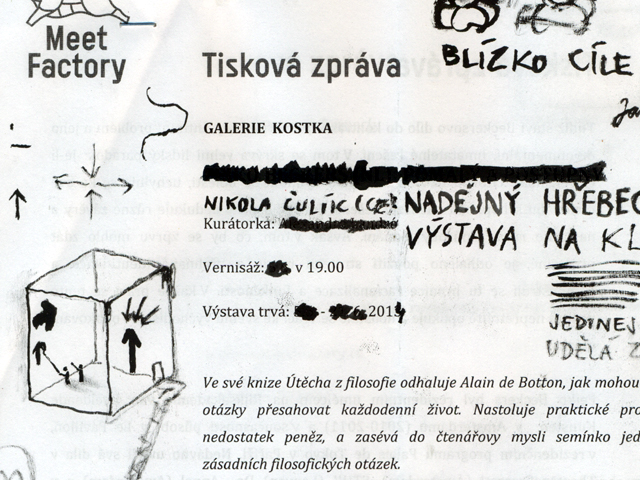 Meet
Factory
Tisková zpráva
BLÍZKO CÍLE
GALERIE KOSTKA
NIKOLA ČULÍK (CZ)
NADĚJNÝ HŘEBEC
Kurátorka:
VÝSTAVA NA KL
Vernisáž: v 19.00
Výstava trvá: - 201
JEDINEJ
UDĚLA Z
Ve své knize Útěcha z filosofie odhaluje Alain de Botton, jak mohou
otázky přesahovat každodenní život. Nastoluje praktické pro
nedostatek peněz, a zasévá do čtenářovy mysli semínko jed
zásadních filosofických otázek.